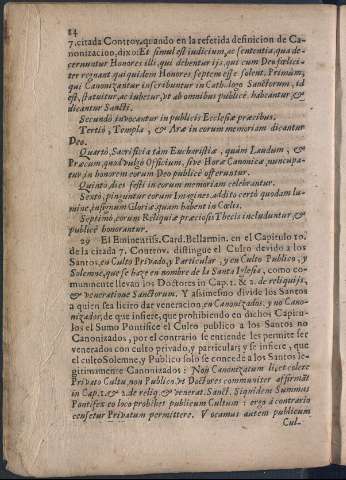 14
7. citada Controv. quando en la referida definicion de Ca-
nonizacion, dixo: Et simul est iudicium, ac sententia, qua de-
cernuntur Honores illi, qui debentur ijs, qui cum Deo fœlici-
ter regnant qui quidem Honores septem esse solent. Primùm,
qui Canonizantur inscribuntur in Cathalogo Sanctorum, id
est, statuitur, ac iubetur, ut ab omnibus publicè habeantur, &
dicantur Sancti.
Secundò invocantur in publicis Ecclesiæ præcibus.
Tertiò, Templa, & Aræ in eorum memoriam dicantur
Deo.
Quartò, Sacrificia tàm Eucharistiæ, quàm Laudum, &
Præcum, quod vulgò Officium, sive Horæ Canonicæ nuncupa-
tur in honorem eorum Deo publicè offeruntur.
Quintò, dies festi in eorum memoriam celebrantur.
Sextò, pinguntur eorum Imagines, addito certò quodam lu-
mine, insignum Gloriæ, quam habent in Cœlis.
Septimò, eorum Reliquiæ præciosis Thecis includuntur, &
publicè honorantur.
29 El Eminentiss. Card. Bellarmin. en el Capitulo 10.
de la citada 7. Controv. distingue el Culto devido a los
Santos, en Culto Privado, y Particular, y en Culto Publico, y
Solemne, que se haze en nombre de la Santa Iglesia, como co-
munmente llevan los Doctores in Cap. 1. & 2. de reliquijs,
& veneratione Sanctorum. Y assimesmo divide los Santos
a quien sea licito dar veneracion, en Canonizados, y no Cano-
nizados, de que infiere, que prohibiendo en dichos Capitu-
los el Sumo Pontifice el Culto publico a los Santos no
Canonizados, por el contrario se entiende les permite ser
venerados con culto privado, y particular; y se infiere, que
el culto Solemne, y Publico solo se concede a los Santos le-
gitimamente Canonizados: Non Canonizatum licet colere
Privato Cultu, non Publico, ut Doctores communiter affirmãt
in Cap. 1. & 2. de reliq. & venerat. Sanct. Siquidem Summus
Pontifex eo loco prohibet publicum Cultum: ergo à contrario
censetur Privatum permittere. Vocamus autem publicum
Cul-